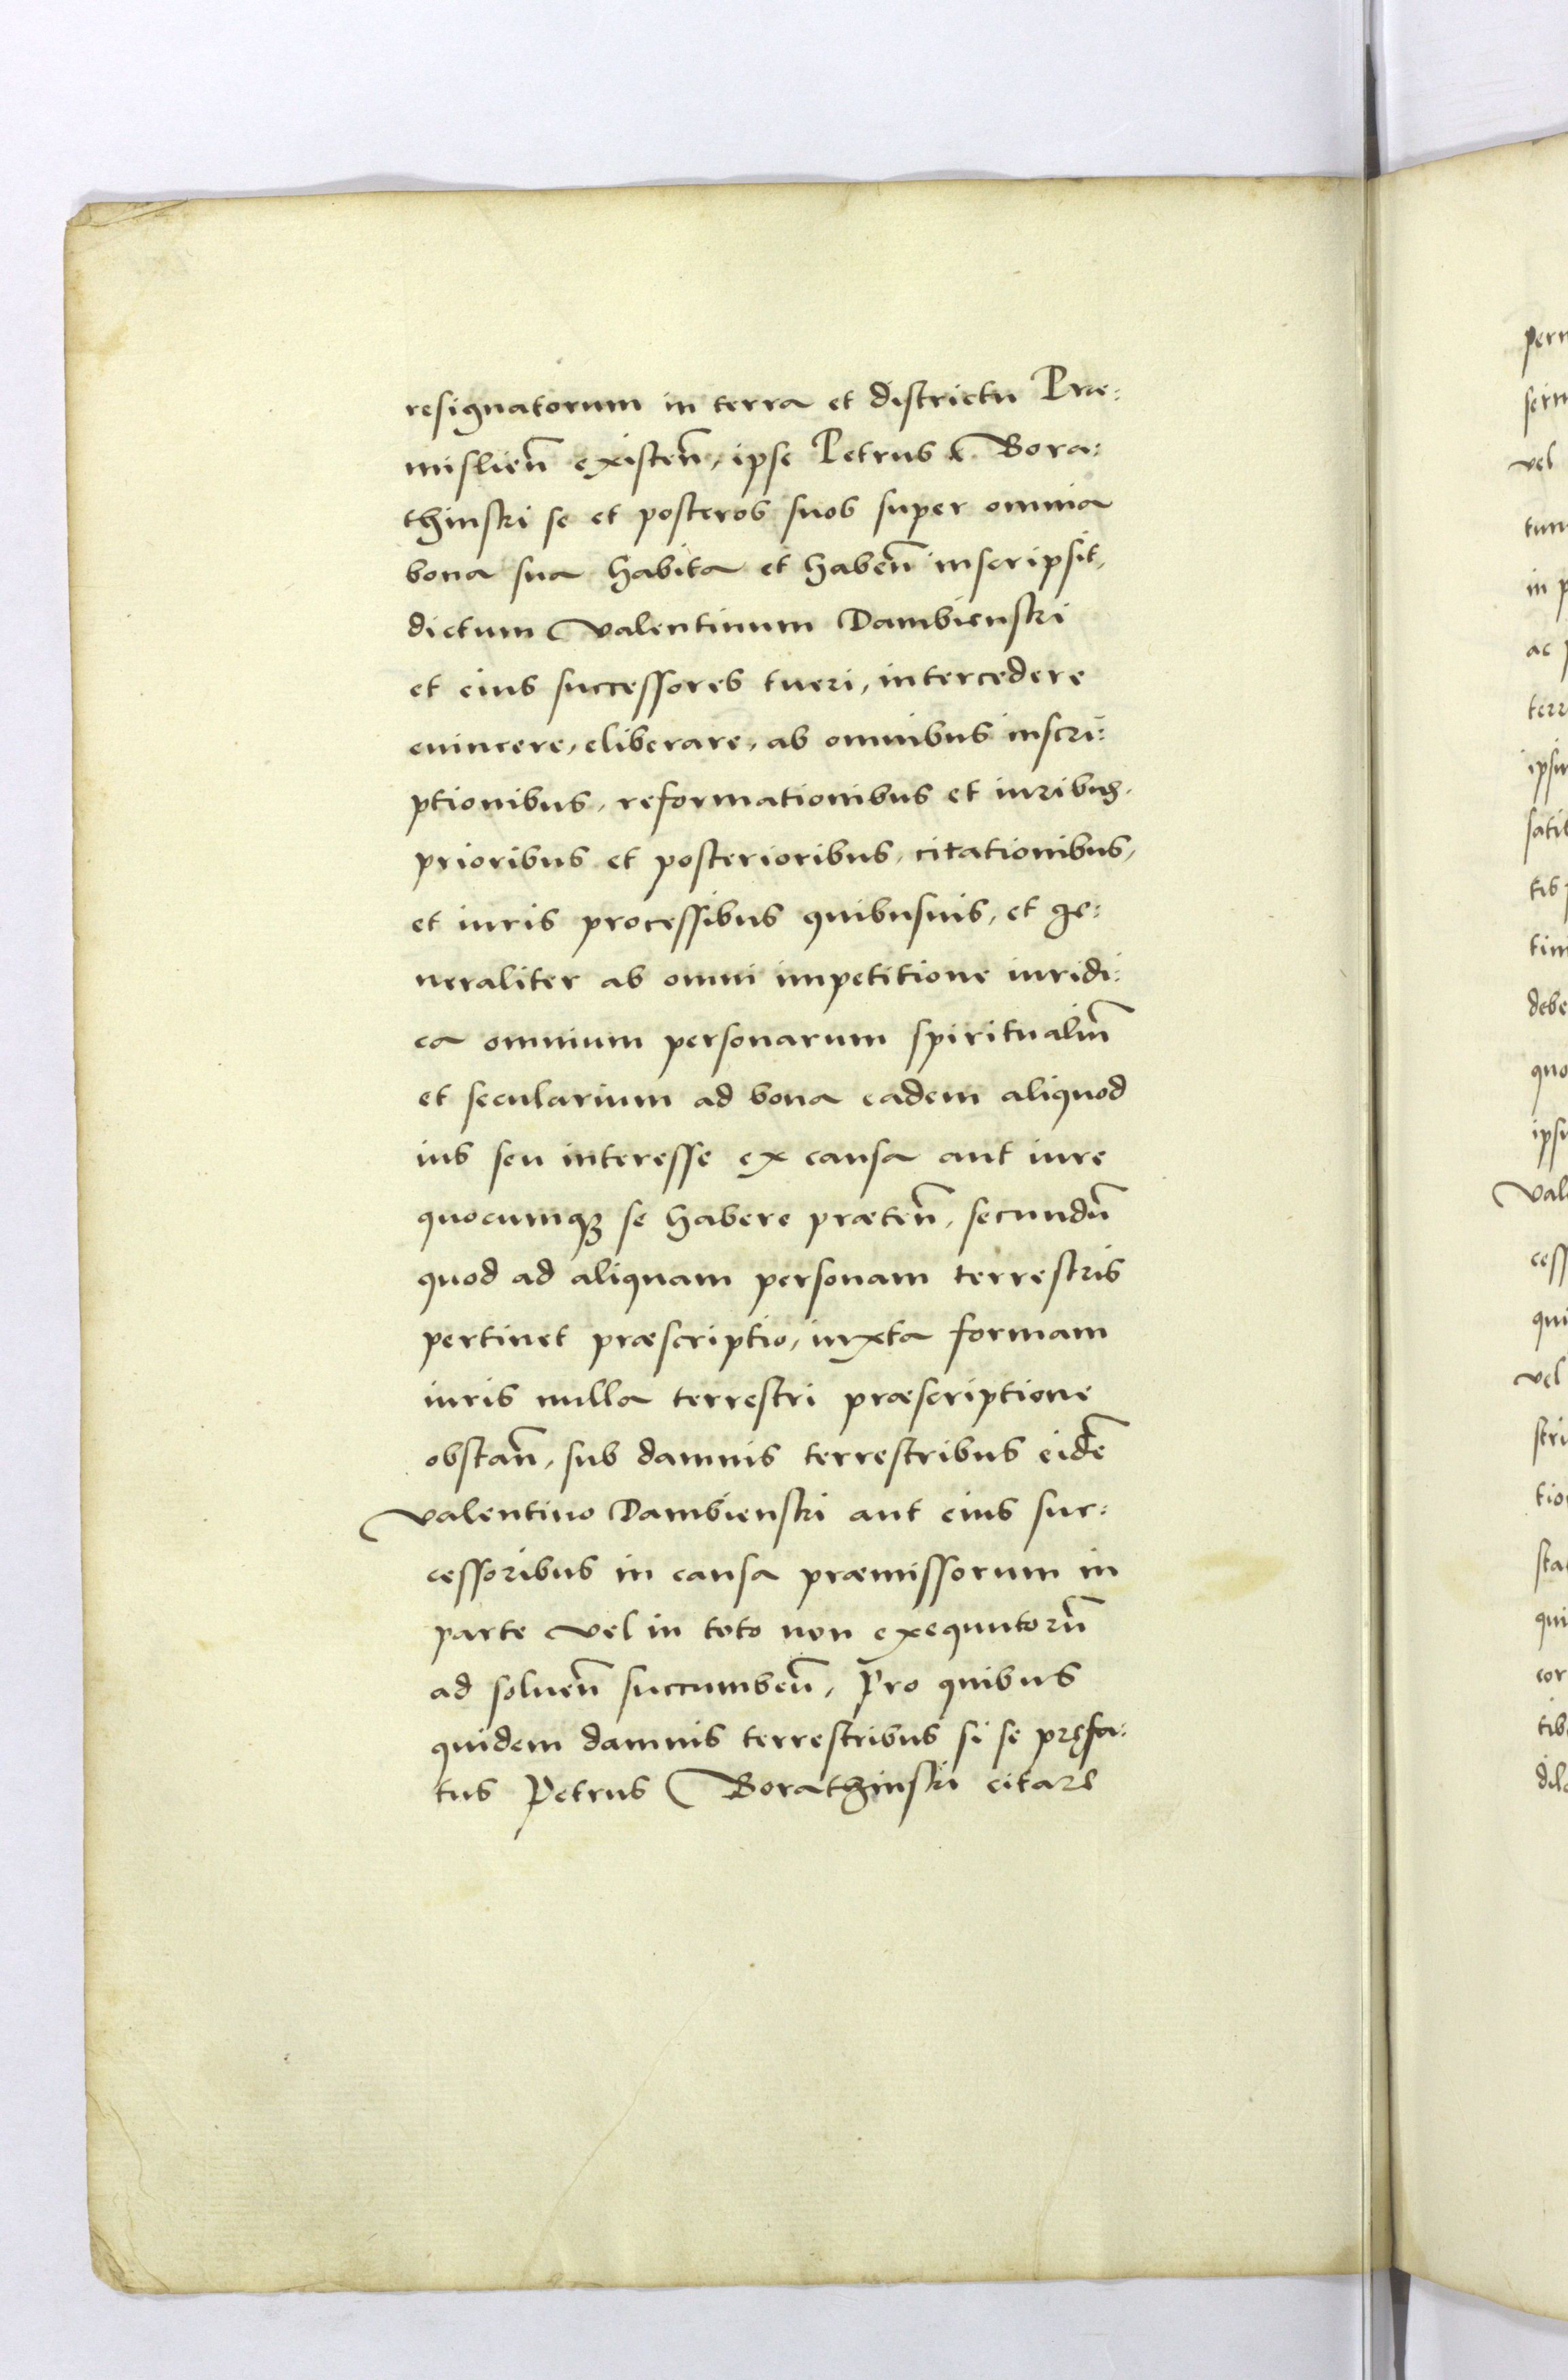 resignatorum in terra et districtu Præ:
mislien̄ existen̄, ipse Petrus Bora:
thinski se et posteros suos super omnia
bona sua habita et haben̄ inscripsit,
dictum Valentinum Dambienski
et eius successores tueri, intercedere
euincere, eliberare, ab omnibus inscri:
ptionibus, reformationibus et iuribus,
prioribus et posterioribus, citationibus,
et iuris processibus quibusuis, et ge:
neraliter ab omni impetitione iuridi:
ca omnium personarum spiritualiū
et secularium ad bona eadem aliquod
ius seu interesse ex causa aut iure
quocumqꝫ se habere præten̄, secundū
quod ad aliquam personam terrestris
pertinet præscriptio, iuxta formam
iuris nulla terrestri præscriptione
obstan̄, sub damnis terrestribus eidē
Valentino Dambienski aut eius suc:
cessoribus in causa præmissorum in
parte vel in toto non exequutorū
ad soluen̄ succumben̄, Pro quibus
quidem damnis terrestribus si se pręfa:
tus Petrus Borathinski citare
perm
serm
vel
tum
in p
ac
terr
ipsiu
satis
tis
tim
debe
quo
ipsi
Val
cess
qui
vel
scri
tio
sta
qui
cor
tib
dila